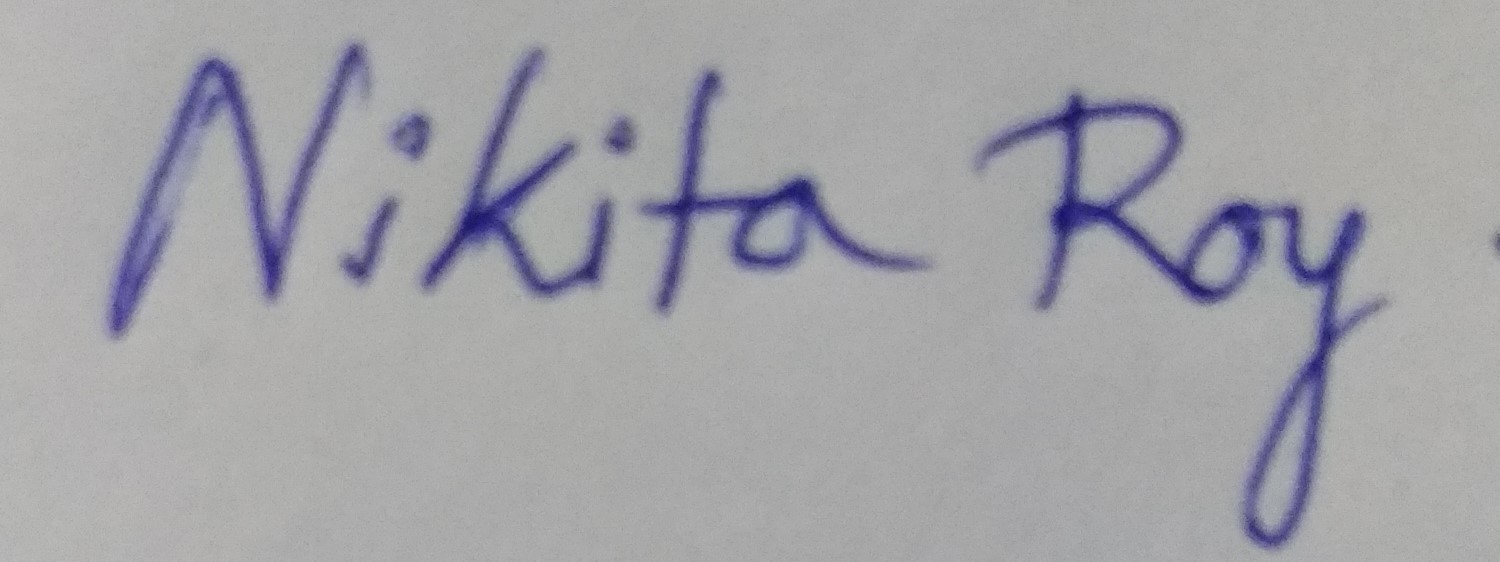 Nikita Roy